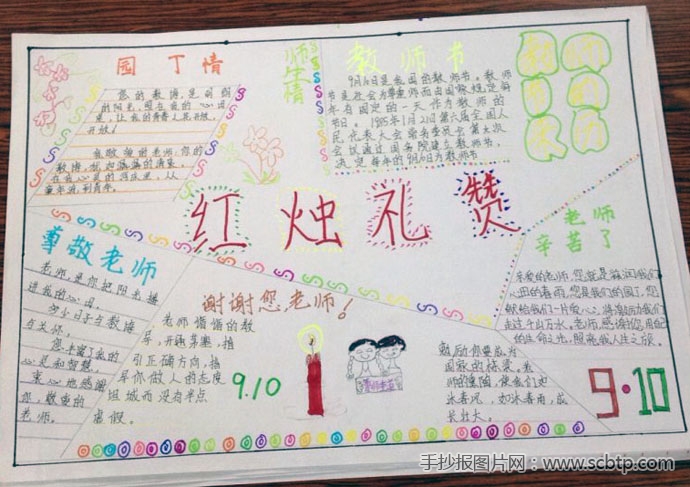 园丁情
您的教诲是明朗
的阳光，照在我的心田
里，让我的青春人花开放，
开放！
师生情
教师节
9月10日是我国的教师节。教师
节是社会为尊重师而由国家规定每
年有固定的一天作为教师的
节日。1985年1月21日第六届全国人
民代表大会常务委员会第九次
会议通过国务院建立教师节
决定每年的9月10日为教师节
红烛礼赞
尊敬老师
老师，是您把阳光播
进我的心田，
您丰富了我的
心灵和智慧，
衷心地感谢
您，敬爱的
老师。
谢谢您，老师！
老师 惜惜的教
导，开通茅塞，指
引正确方向，指
导你做人的态度
坦诚而没有半点
虚假。
9.10
鼓励你要成为
国家的栋梁。老
师的谆陶，使我们如
沐春风，如沐春雨，成
长壮大。
老师
辛苦了
亲爱的老师，您就是滋润我们
心田的春雨，您是我们的园丁，您
献给我们一片爱心，将帮助我们
走过千山万水。老师，感谢您，用自己
的生命之光，照亮我人生之旅。
9·10
手抄报图片网：www.scbtp.com